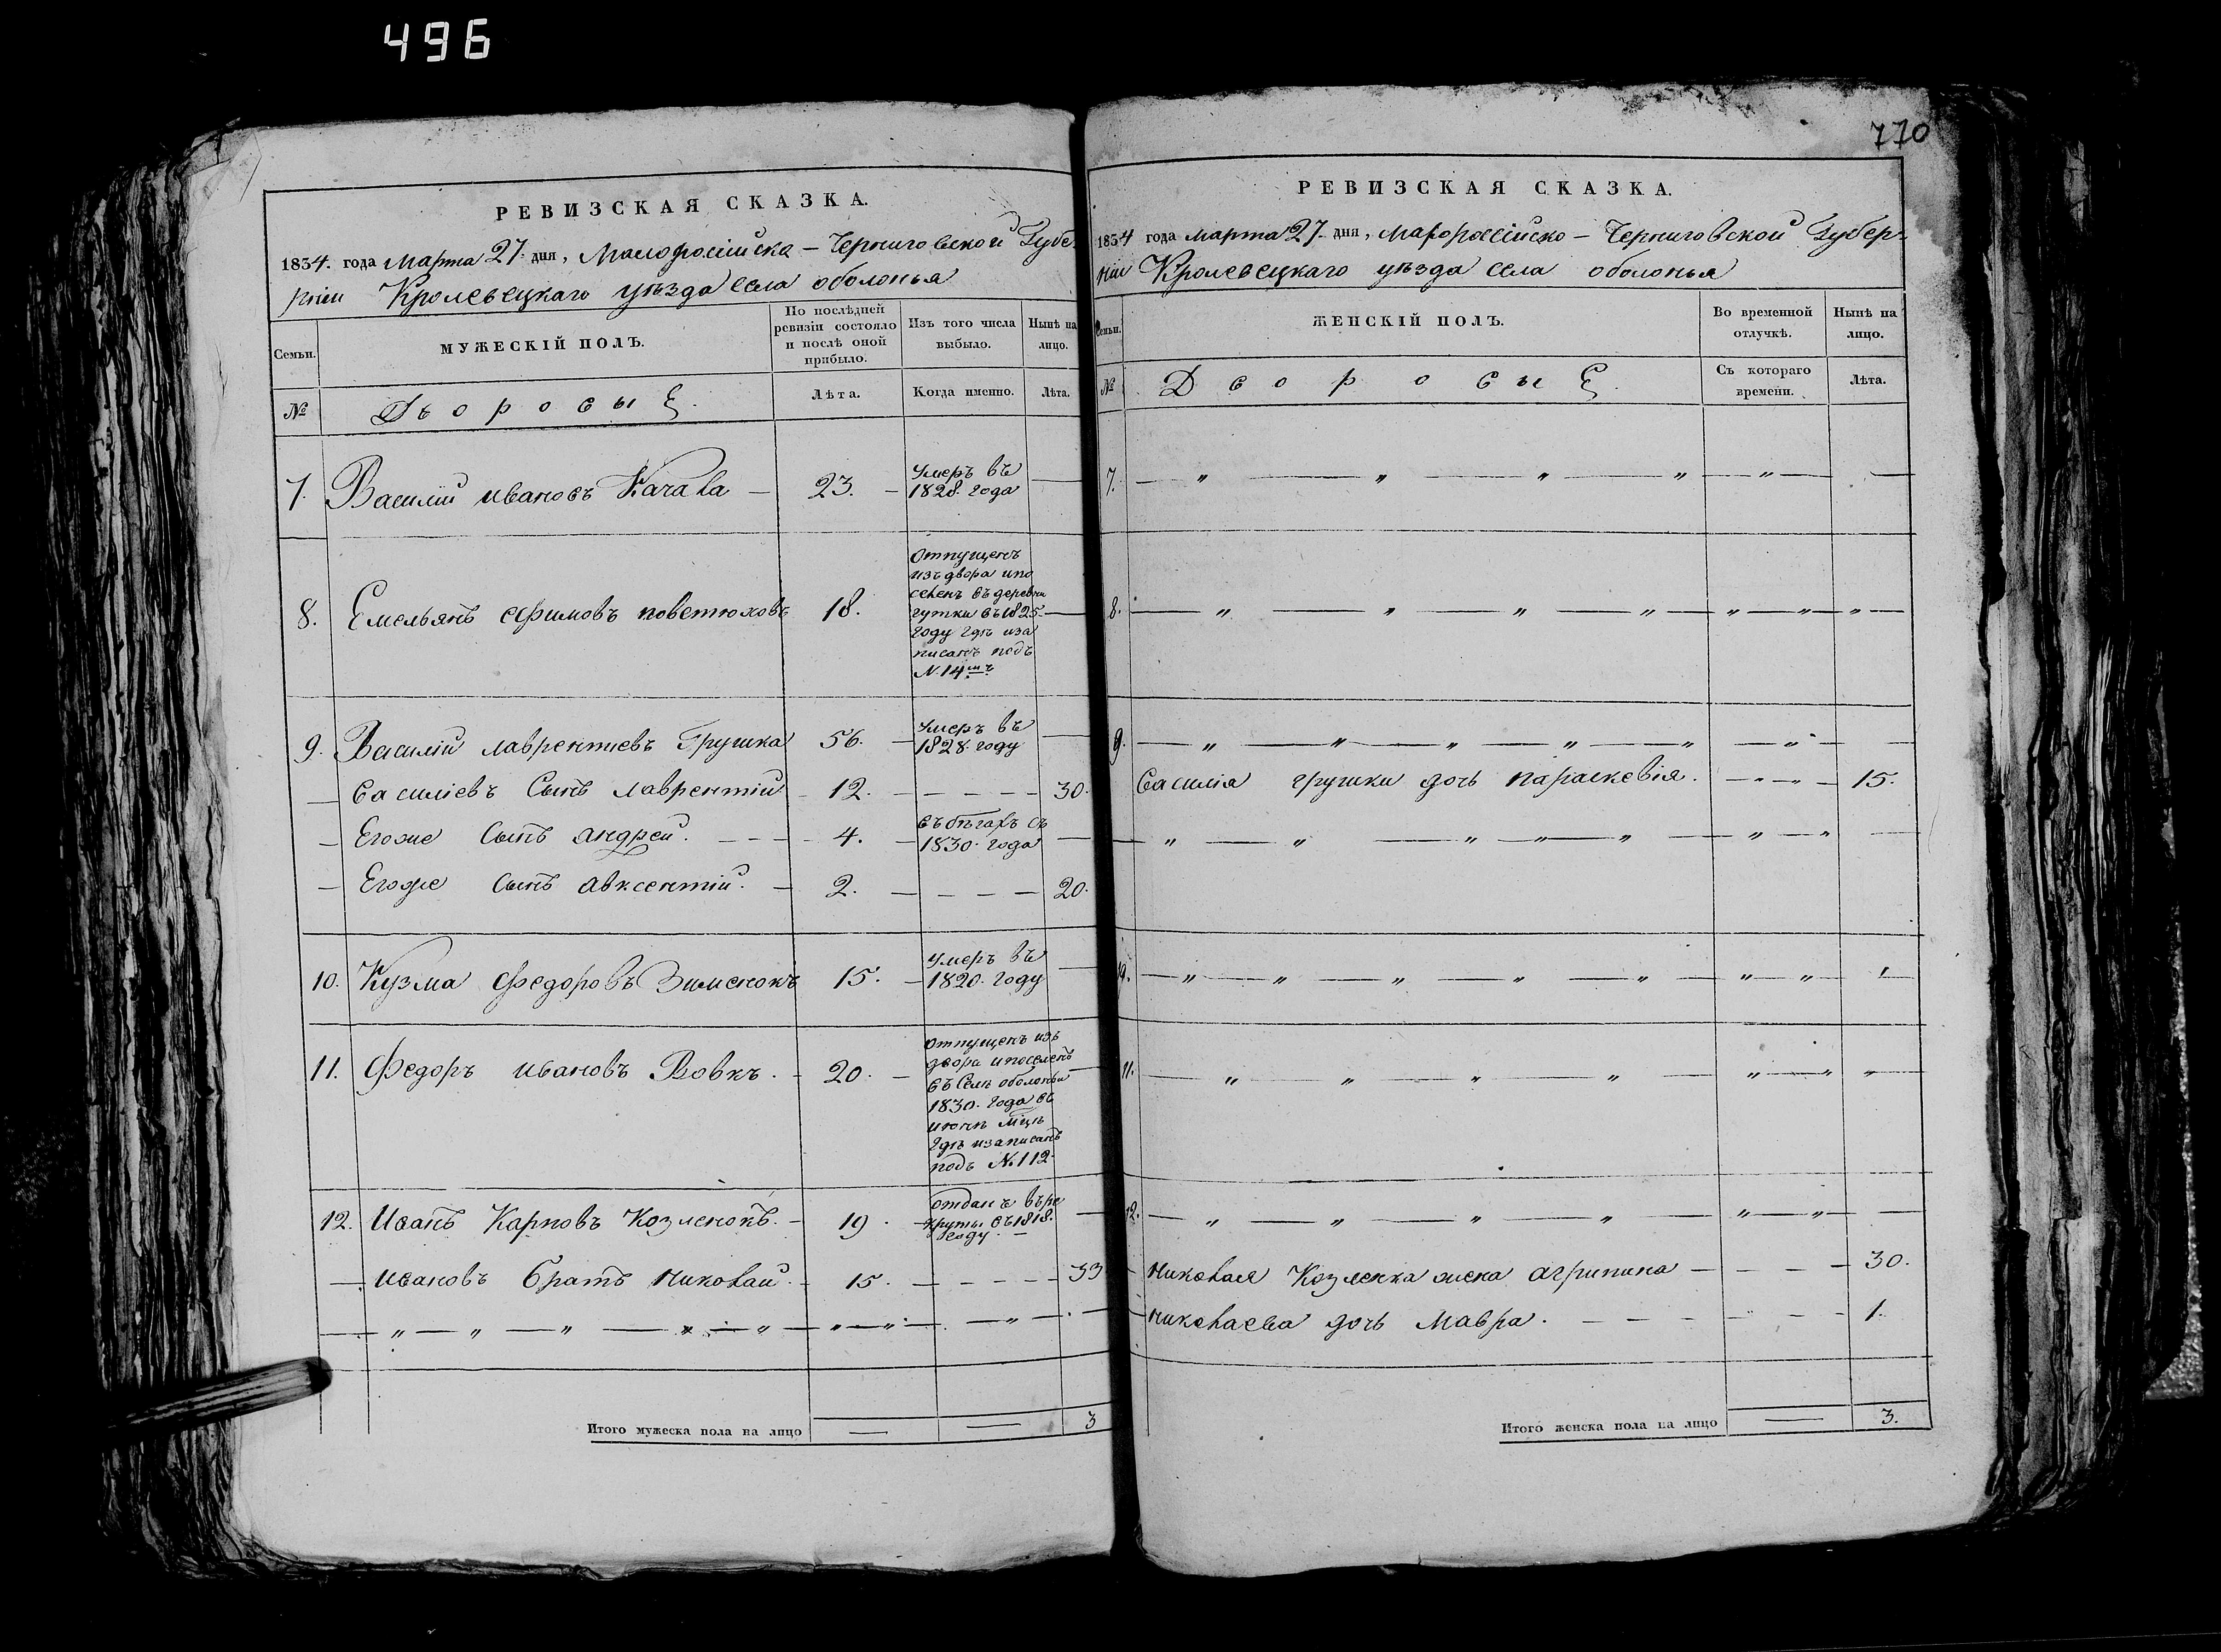 496
770
РЕВИЗСКАЯ СКАЗКА.
1834. года Марта 27. дня, Малоросiйска – Черниговской Губе-
рнiи Кролевецкаго уѣзда села оболонья
Семьи.
МУЖЕСКIЙ ПОЛЪ.
По послѣдней ревизiи состояло и послѣ оной прибыло.
Изъ того числа выбыло.
Нынѣ на лицо.
№
Дворовыε.
Лѣта.
Когда именно.
Лѣта.
7. Василiй ивановъ Качала — 23. — умеръ въ
1828. года —
8. Емельянъ ефимовъ поветюховъ 18. отпущенъ
изъ двора ипо
селенъ въ деревни
гутки въ 1825 —
году гдѣ иза
писанъ подъ
N. 14мъ
9. Василiй лаврентиевъ Грушка 56. — умеръ въ
1828. году —
— василiевъ Сынъ лаврентiй – 12. — — — — 30.
— Егоже сынъ андрей. — — 4. — въ бѣгахъ съ
1830. года —
— Егоже сынъ авксентiй. — 2. — — — — 20.
10. Кузма федоровъ Зименокъ 15. — умеръ въ
1820. году —
11. Федоръ ивановъ Вовкъ. — 20. — отпущенъ изъ
двора ипоселенъ
въ Селѣ оболоньи
1830. года въ
июнѣ мѣцѣ
гдѣ изаписанъ
подъ №. 112.
12. Иванъ Карповъ Козленокъ. — 19. — отданъ въ ре
круты въ 1818.
году. —
— ивановъ братъ николай. — 15. — — — — 33
— „ — „ — „ — „ — „ — „ — „ — „ —
Итого мужеска пола на лицо — — 3
РЕВИЗСКАЯ СКАЗКА.
1834 года марта 27. дня, малоросiйско – Черниговской Губер-
нiи Кролевецкаго уѣзда села оболонья
Семьи.
ЖЕНСКIЙ ПОЛЪ.
Во временной отлучкѣ.
Нынѣ на лицо.
№
Дворовыε.
Съ котораго времени.
Лѣта.
7. — „ — „ — „ — „ — „ — —
8. — „ — „ — „ — „ — „ — „ — „ —
9. — „ — „ — „ — „ — „ — „ — —
василiя грушки дочь параскевiя. — „ — „ — 15.
— „ — „ — „ — „ — „ — „ — „ —
10. — „ — „ — „ — „ — „ — „ — „ —
11. — „ — „ — „ — „ — „ — „ — „
12. — „ — „ — „ — „ — „ — „ — —
— николая Козленка жена агрипина — — — — 30.
— николаева дочь мавра. — — — — — 1.
Итого женска пола на лицо — 3.